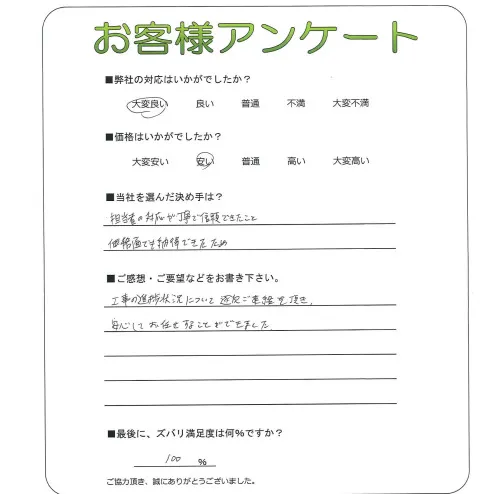 お客様アンケート
■弊社の対応はいかがでしたか？
大変良い 良い 普通 不満 大変不満
■価格はいかがでしたか？
大変安い 安い 普通 高い 大変高い
■当社を選んだ決め手は？
担当者の対応が丁寧で信頼できたこと
価格面でも納得できたため
■ご感想・ご要望などをお書き下さい。
工事の進捗状況について適宜ご連絡を頂き、
安心してお任せすることができました。
■最後に、ズバリ満足度は何%ですか？
100 %
ご協力頂き、誠にありがとうございました。